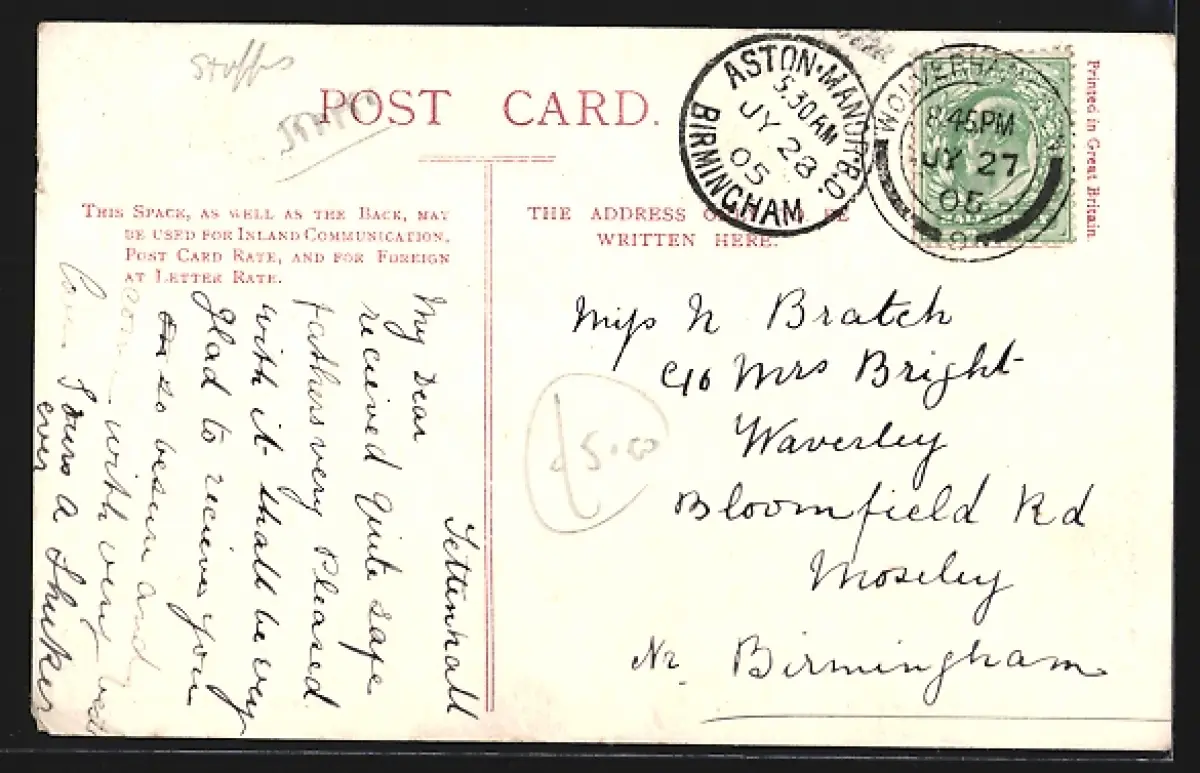 Staffs
POST CARD.
THIS SPACE, AS WELL AS THE BACK, MAY
BE USED FOR INLAND COMMUNICATION,
POST CARD RATE, AND FOR FOREIGN
AT LETTER RATE.
THE ADDRESS ONLY TO BE
WRITTEN HERE.
Printed in Great Britain.
ASTON·MANOR B.O
5.30AM
JY 28
05
BIRMINGHAM
WOLVERHAMPTON
8.45PM
JY 27
05
Tettenhall
My Dear
recieved quite safe
fathers very Pleased
with it shall be very
glad to recieve you
so and
with very
Yours A Shuker
ever
£5.00
Miss N Bratch
c/o Mrs Bright
Waverley
Bloomfield Rd
Moseley
Nr Birmingham